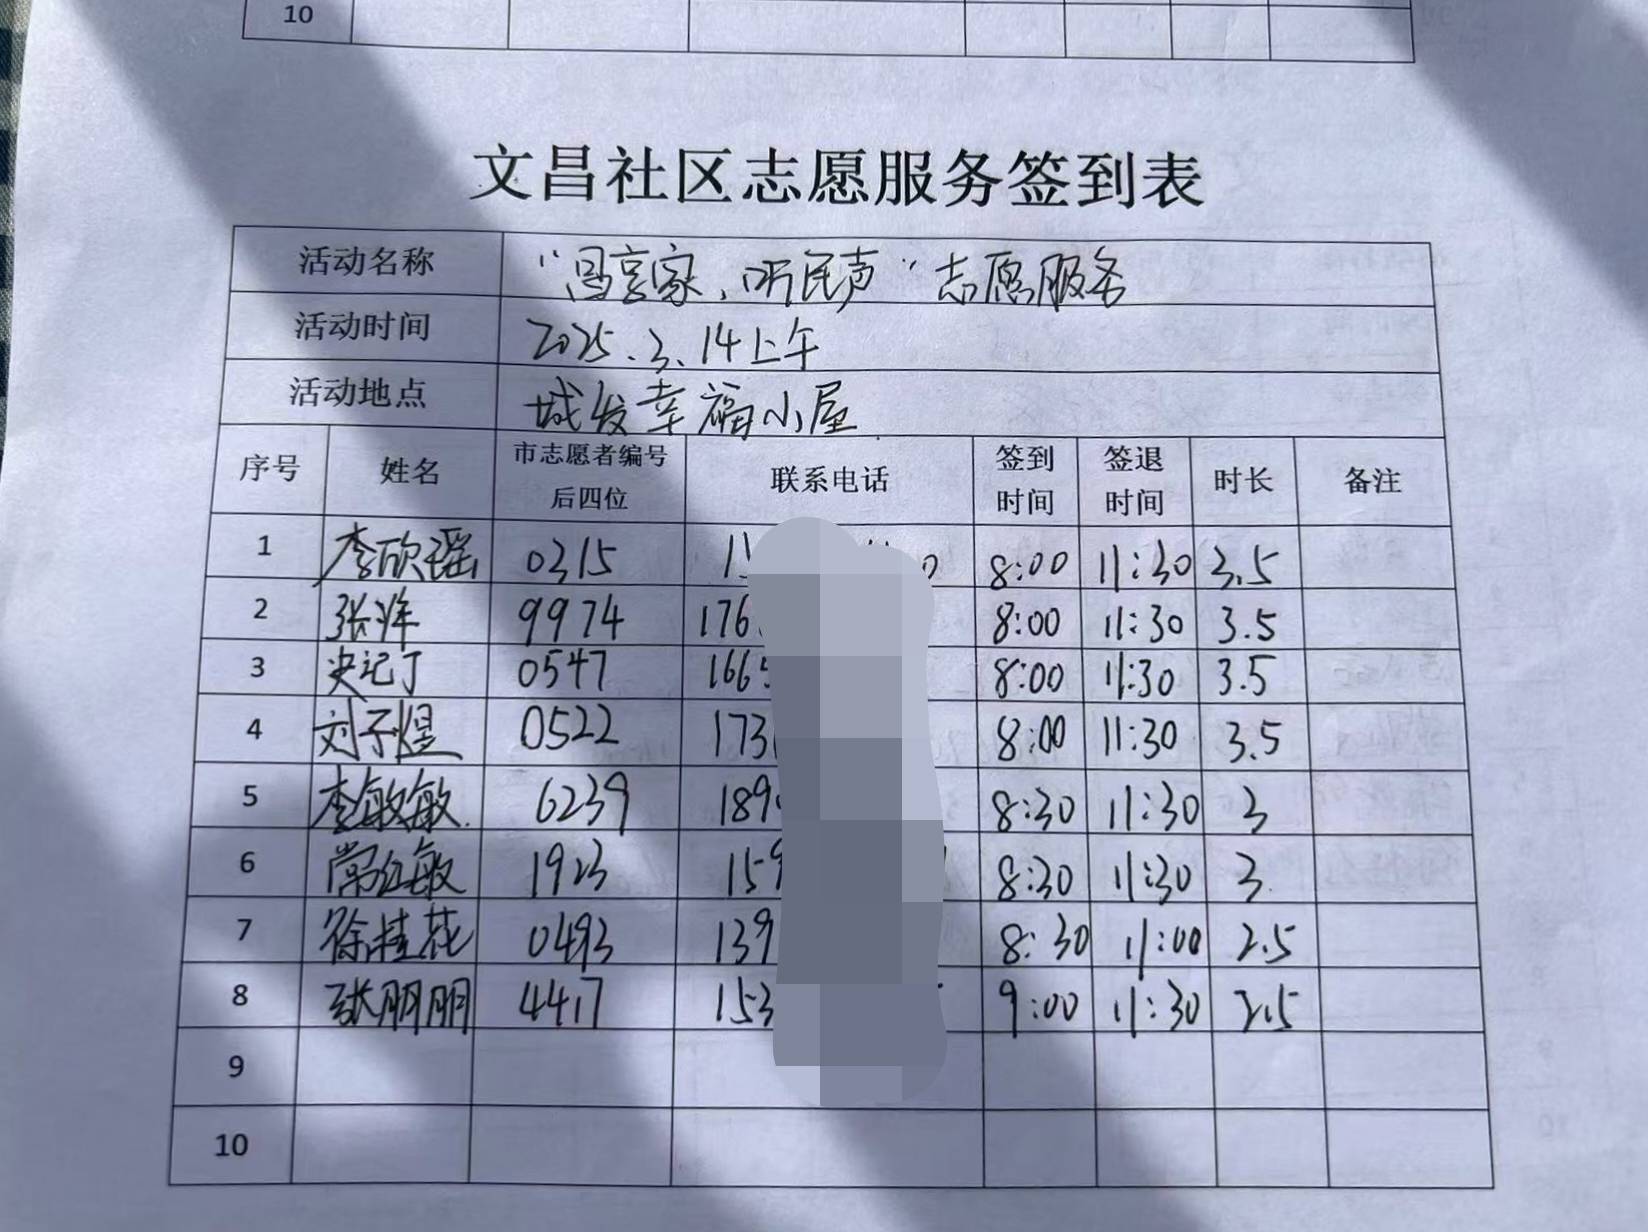 10
文昌社区志愿服务签到表
活动名称 "冯享家,听民声"志愿服务
活动时间 2025.3.14上午
活动地点 城发幸福小屋
序号 姓名 市志愿者编号后四位 联系电话 签到时间 签退时间 时长 备注
1 李欣瑶 0315 8:00 11:30 3.5
2 张洋 9974 176 8:00 11:30 3.5
3 0547 1665 8:00 11:30 3.5
4 刘子煜 0522 173 8:00 11:30 3.5
5 李敏敏 6239 189 8:30 11:30 3
6 常红敏 1923 159 8:30 11:30 3
7 徐桂花 0493 139 8:30 11:00 2.5
8 张朋朋 4417 153 9:00 11:30 2.5
9
10